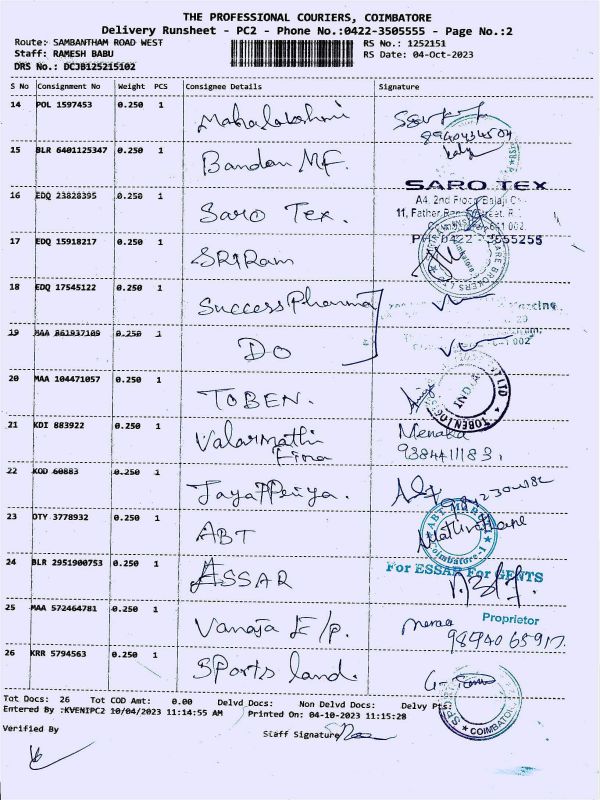 THE PROFESSIONAL COURIERS, COIMBATORE
Delivery Runsheet - PC2 - Phone No.:0422-3505555 - Page No.:2
Route: SAMBANTHAM ROAD WEST RS No.: 1252151
Staff: RAMESH BABU RS Date: 04-Oct-2023
DRS No.: DCJB125215102
S No Consignment No Weight PCS Consignee Details Signature
14 POL 1597453 0.250 1 Mahalakshmi
15 BLR 6401125347 0.250 1 Bandan MF.
16 EDQ 23828395 0.250 1 Saro Tex. SARO TEX
A4, 2nd Floor Balaji
11, Father
641 002.
PH: 0422 - 3555255
17 EDQ 15918217 0.250 1 SRIRam
18 EDQ 17545122 0.250 1 Success Pharma
19 MAA 861937109 0.250 1 DO
20 MAA 104471057 0.250 1 TOBEN.
21 KDI 883922 0.250 1 Valarmathi Menaka
Fina 9384411183.
22 KOD 60883 0.250 1 Jayappriya.
23 DTY 3778932 0.250 1 ABT ABT MARUTI
Coimbatore-1
24 BLR 2951900753 0.250 1 ESSAR For ESSAR For GENTS
Proprietor
25 MAA 572464781 0.250 1 Vanaja E/p.
26 KRR 5794563 0.250 1 Sports land.
COIMBATORE
Tot Docs: 26 Tot COD Amt: 0.00 Delvd Docs: Non Delvd Docs: Delvy Pts:
Entered By :KVENIPC2 10/04/2023 11:14:55 AM Printed On: 04-10-2023 11:15:28
Verified By Staff Signature